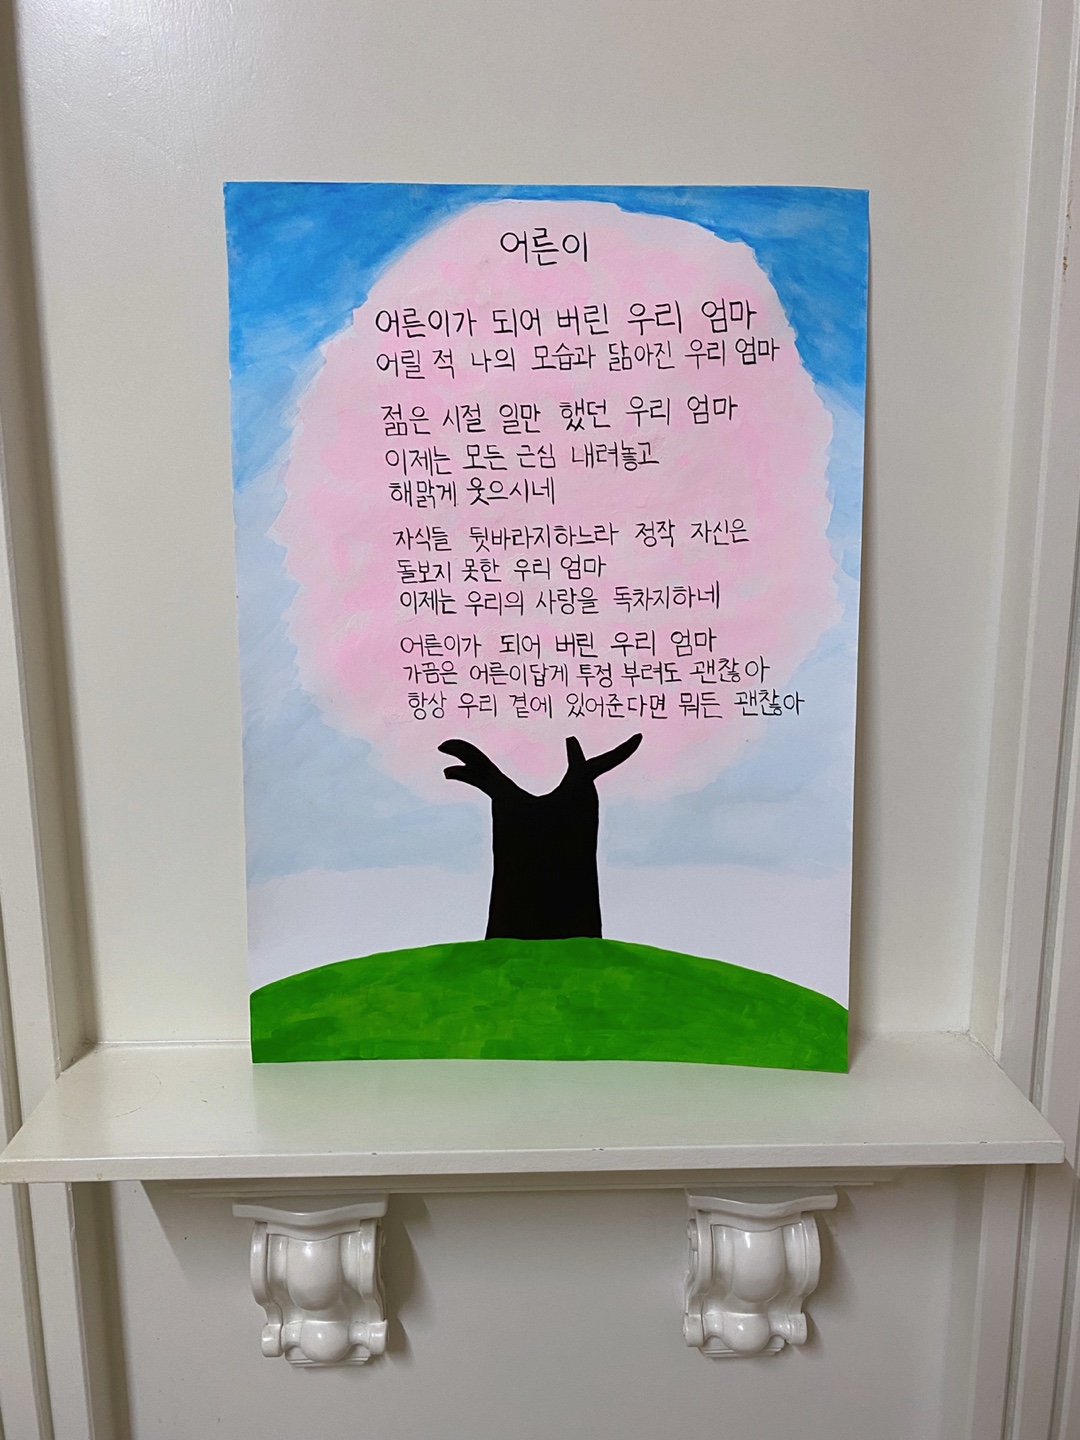 어른이
어른이가 되어 버린 우리 엄마
어릴 적 나의 모습과 닮아진 우리 엄마
젊은 시절 일만 했던 우리 엄마
이제는 모든 근심 내려놓고
해맑게 웃으시네
자식들 뒷바라지하느라 정작 자신은
돌보지 못한 우리 엄마
이제는 우리의 사랑을 독차지하네
어른이가 되어 버린 우리 엄마
가끔은 어른이답게 투정 부려도 괜찮아
항상 우리 곁에 있어준다면 뭐든 괜찮아